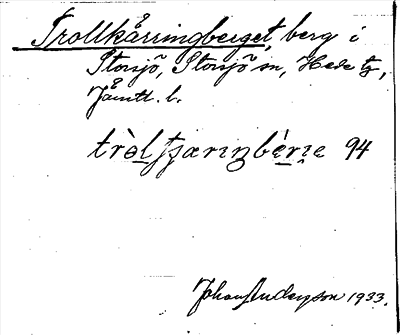 Trollkårringberget, berg i
Storsjö, Storsjö sn, Hede tg,
Jämtl. l.
94
Johan Anderson 1933.